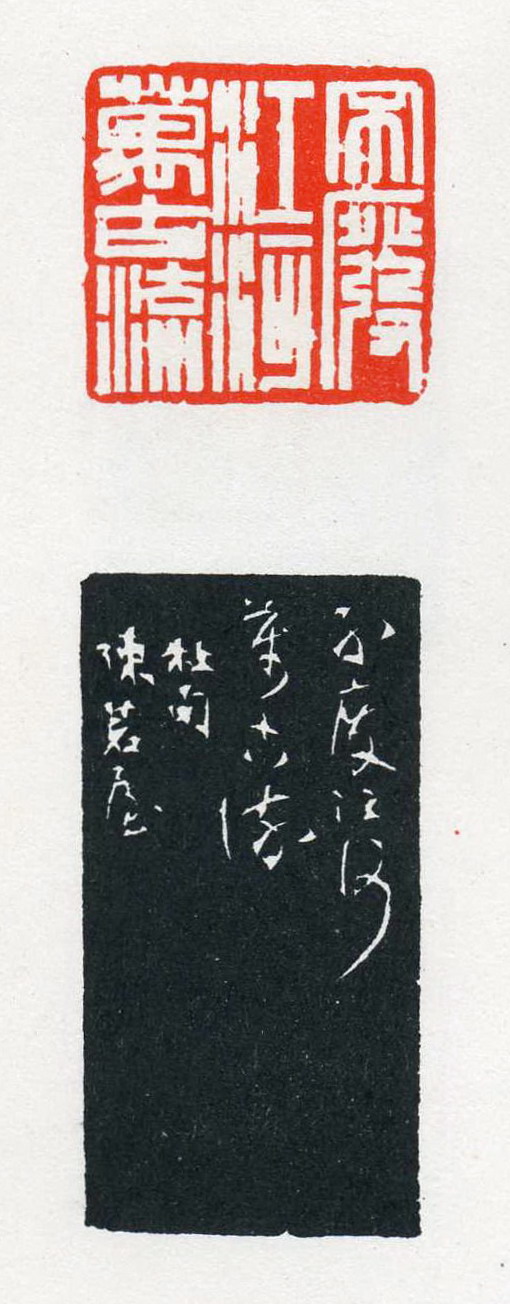 不廢
江河
萬古流
不廢江河
萬古流
杜句
陳茗屋